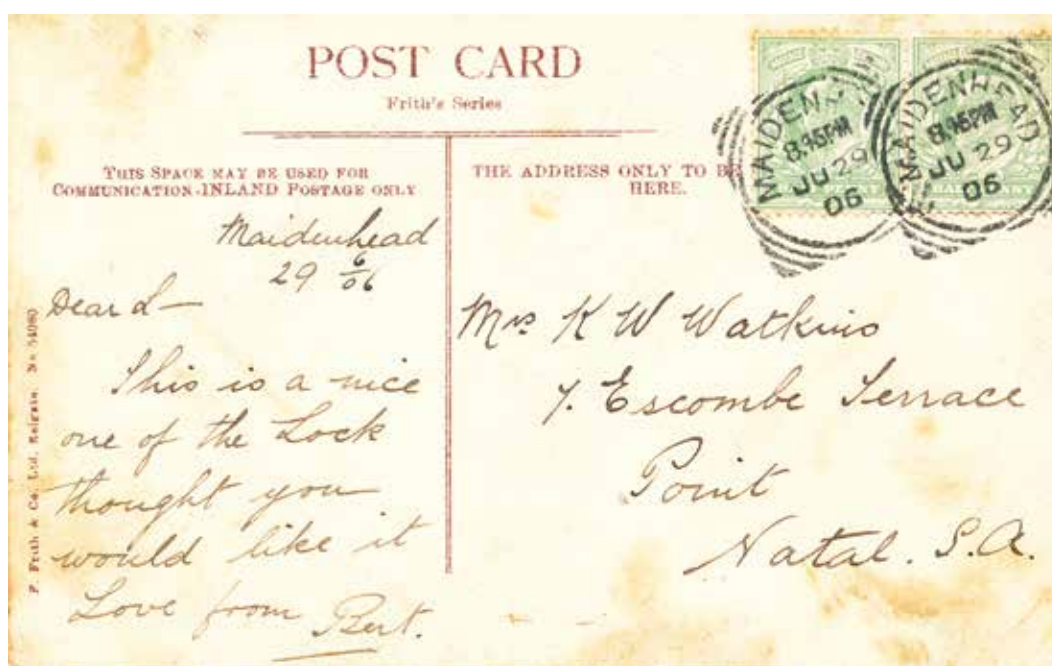 POST CARD
Frith's Series
THIS SPACE MAY BE USED FOR
COMMUNICATION-INLAND POSTAGE ONLY
THE ADDRESS ONLY TO BE
HERE.
MAIDENH
8.45PM
JU 29
06
MAIDENHEAD
8.45PM
JU 29
06
HALFPENNY
Maidenhead
29 6/06
Dear L—
This is a nice
one of the Lock
thought you
would like it
Love from Bert.
Mrs K W Watkins
7. Escombe Terrace
Point
Natal. S.A.
F. Frith & Co. Ltd. Reigate. No. 54080